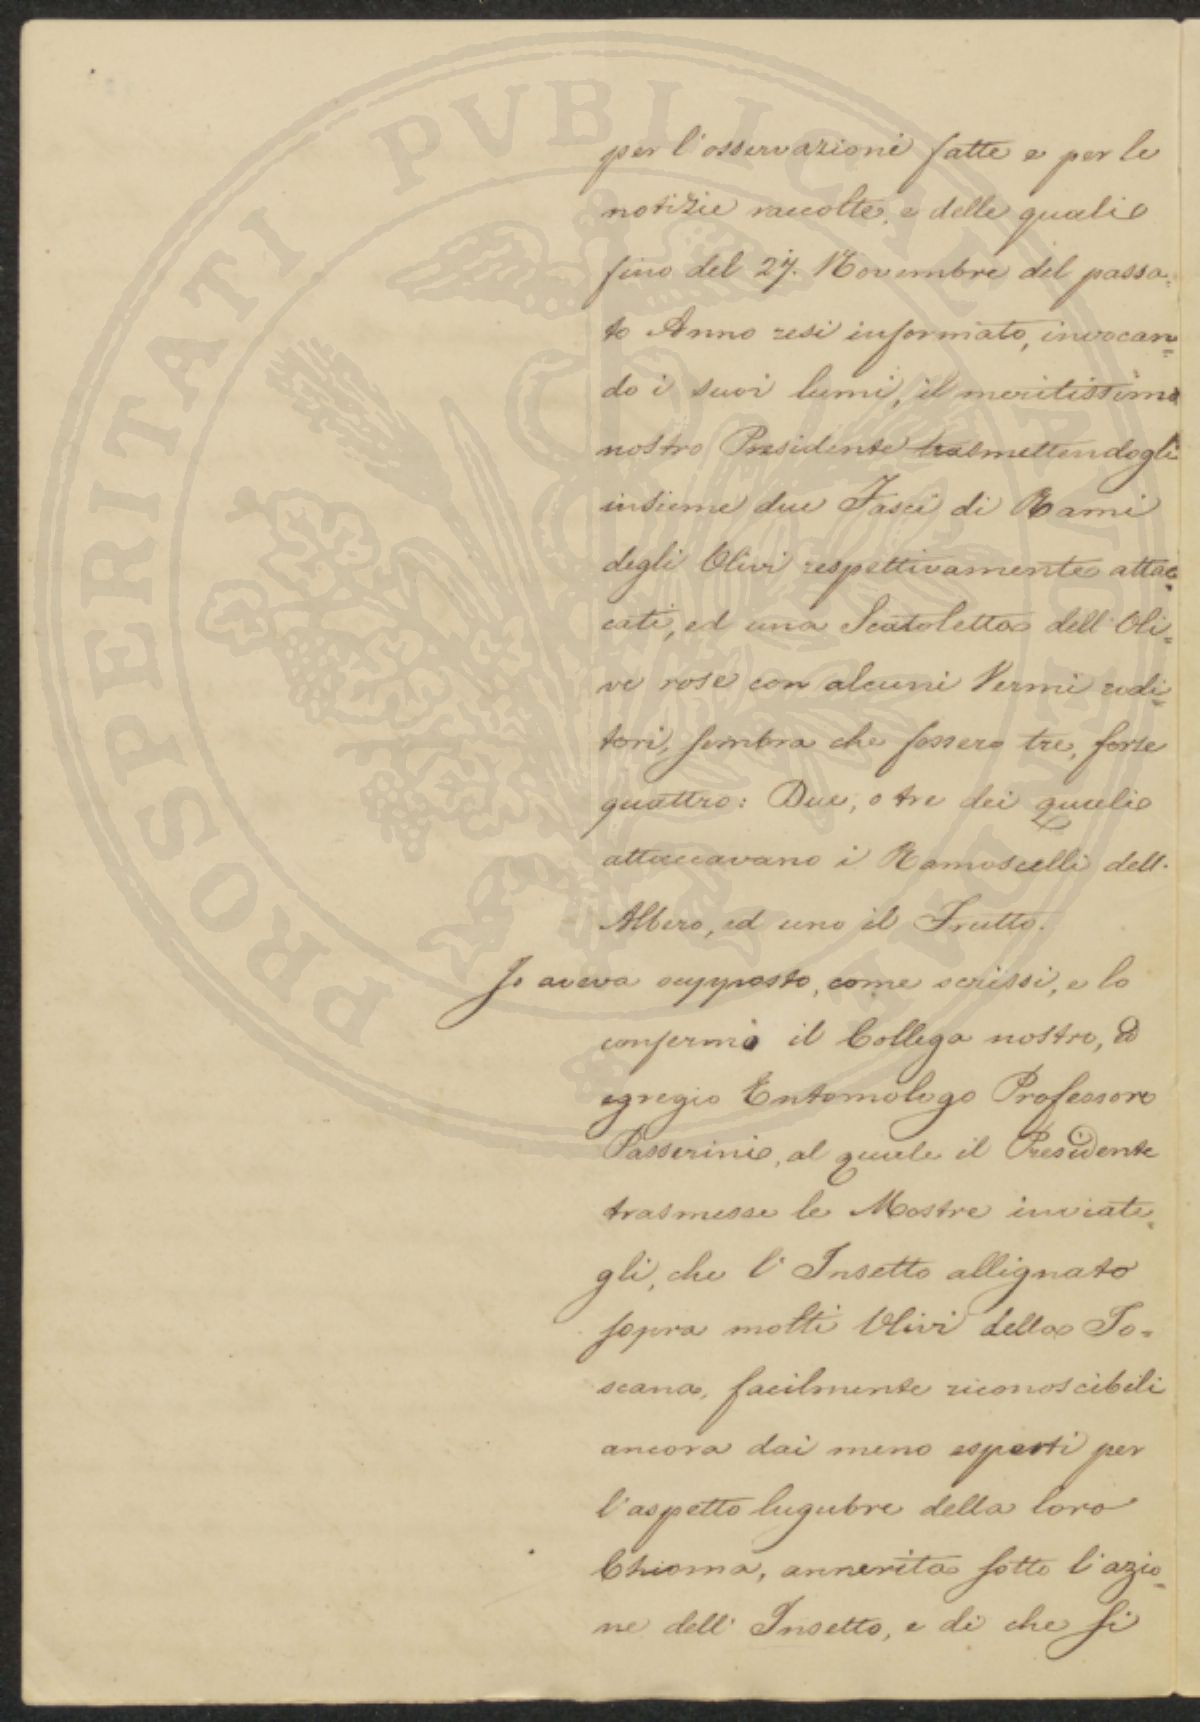 PROSPERITATI PVBLICAE
per l'osservazioni fatte e per le
notizie raccolte, e delle quali
fino del 27. Novembre del passa=
to Anno resi informato, invocan=
do i suoi lumi, il meritissimo
nostro Presidente trasmettendogli
insieme due Fasci di Rami
degli Olivi respettivamente attac=
cati, ed una Scatoletta dell'Oli=
ve rose con alcuni Vermi rodi=
tori, sembra che fossero tre, forse
quattro: Due, o tre dei quali
attaccavano i Ramoscelli dell'
Albero, ed uno il Frutto.
Io aveva supposto, come scrissi, e lo
confermò il Collega nostro, ed
egregio Entomologo Professore
Passerini, al quale il Presidente
trasmesse le Mostre inviate=
gli, che l'Insetto allignato
sopra molti Olivi della To=
scana, facilmente riconoscibili
ancora dai meno esperti per
l'aspetto lugubre della loro
Chioma, annerita sotto l'azio=
ne dell'Insetto, e di che si